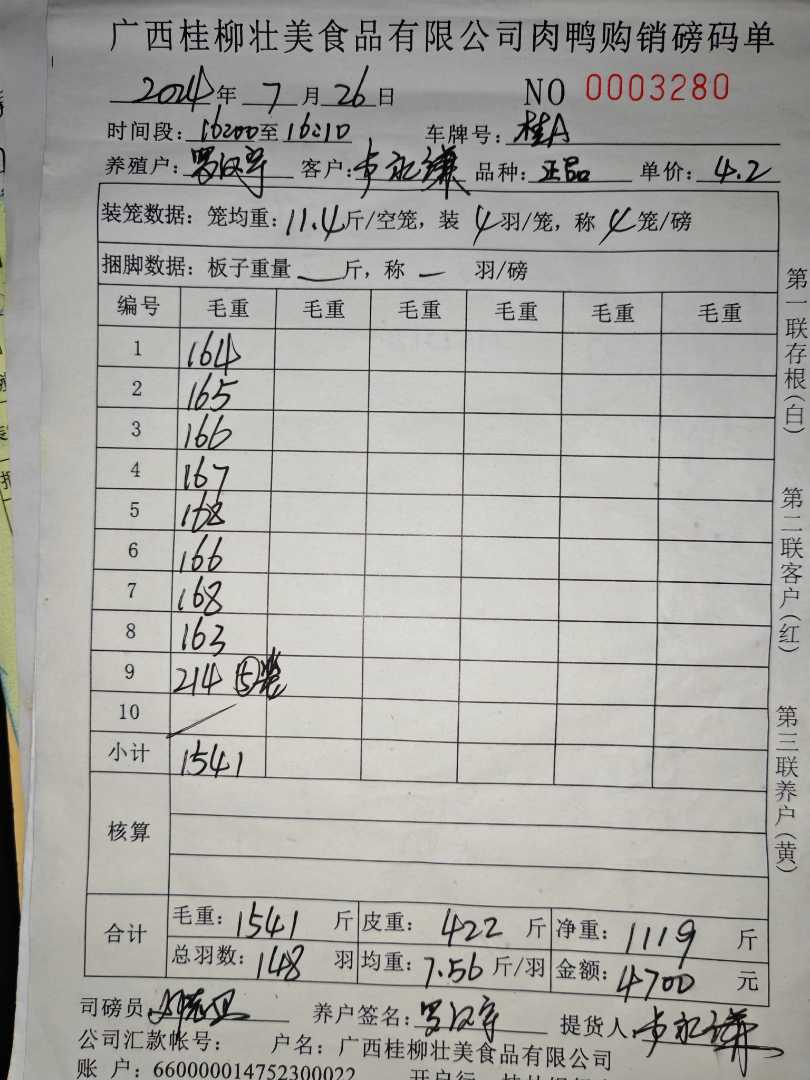 广西桂柳壮美食品有限公司肉鸭购销磅码单
2024年 7月26日 NO 0003280
时间段: 16:00至16:10 车牌号: 桂A
养殖户: 罗汉宁 客户: 品种: 正品 单价: 4.2
装笼数据: 笼均重: 11.4斤/空笼, 装 4羽/笼, 称 4笼/磅
捆脚数据: 板子重量 — 斤, 称 — 羽/磅
编号 毛重 毛重 毛重 毛重 毛重 毛重
1 164
2 165
3 166
4 167
5 168
6 166
7 168
8 163
9 214 ⑤笼
10
小计 1541
核算
合计 毛重: 1541 斤 皮重: 422 斤 净重: 1119 斤
总羽数: 148 羽 均重: 7.56 斤/羽 金额: 4700 元
司磅员: 养户签名: 罗汉宁 提货人:
公司汇款帐号: 户名: 广西桂柳壮美食品有限公司
账 户: 660000014752300022 开户行:
第一联存根(白)
第二联客户(红)
第三联养户(黄)